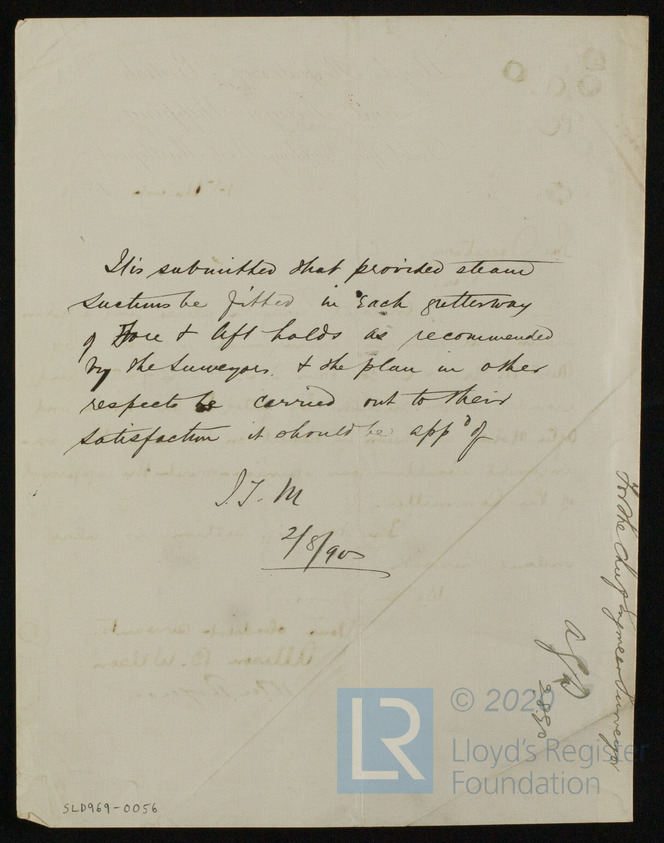 It is submitted that provided steam
suctions be fitted in each gutterway
of Fore & Aft holds as recommended
by the Surveyors & the plan in other
respects be carried out to their
satisfaction it should be app'd of
J. T. M
2/8/90
For the Chief Engineer Surveyor
2.8.90
SLD969-0056
LR
© 2020
Lloyd's Register
Foundation